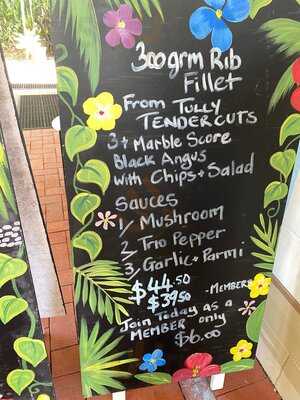 300grm Rib
Fillet
From TULLY
TENDERCUTS
3+ Marble Score
Black Angus
With Chips + Salad
Sauces
1/ Mushroom
2/ Trio Pepper
3/ Garlic + Parmi
$44.50
$39.50 - MEMBERS
Join Today as a
MEMBER only
$6.00